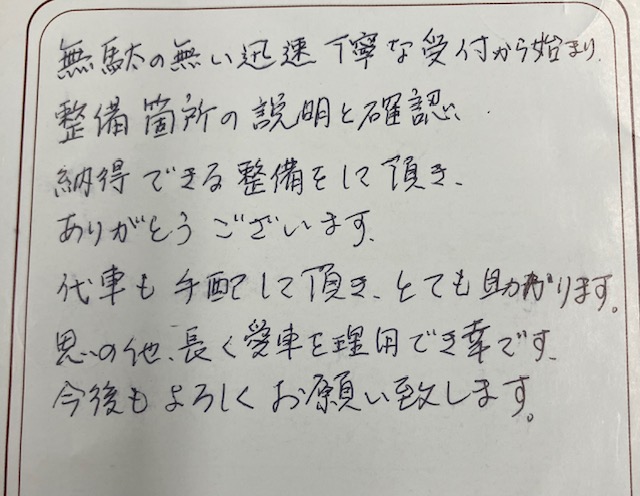 無駄の無い迅速丁寧な受付から始まり、
整備箇所の説明と確認、
納得できる整備をして頂き、
ありがとうございます。
代車も手配して頂き、とても助かります。
思いの他、長く愛車を理用でき幸です。
今後もよろしくお願い致します。